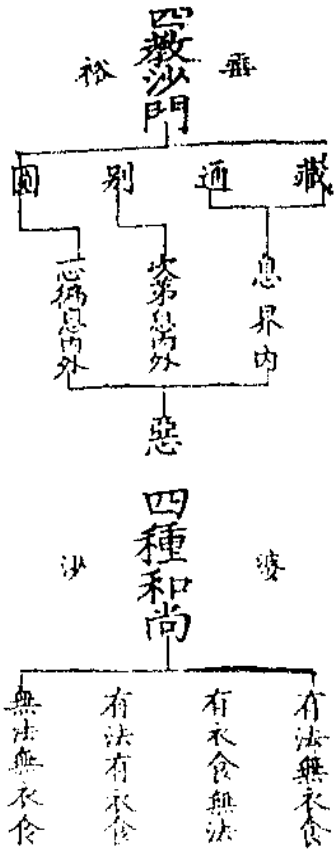 四教沙門
垂裕
藏
通
別
圓
息界內
次第息內外
一心徧息內外
惡
四種和尚
婆沙
有法無衣食
有衣食無法
有法有衣食
無法無衣食